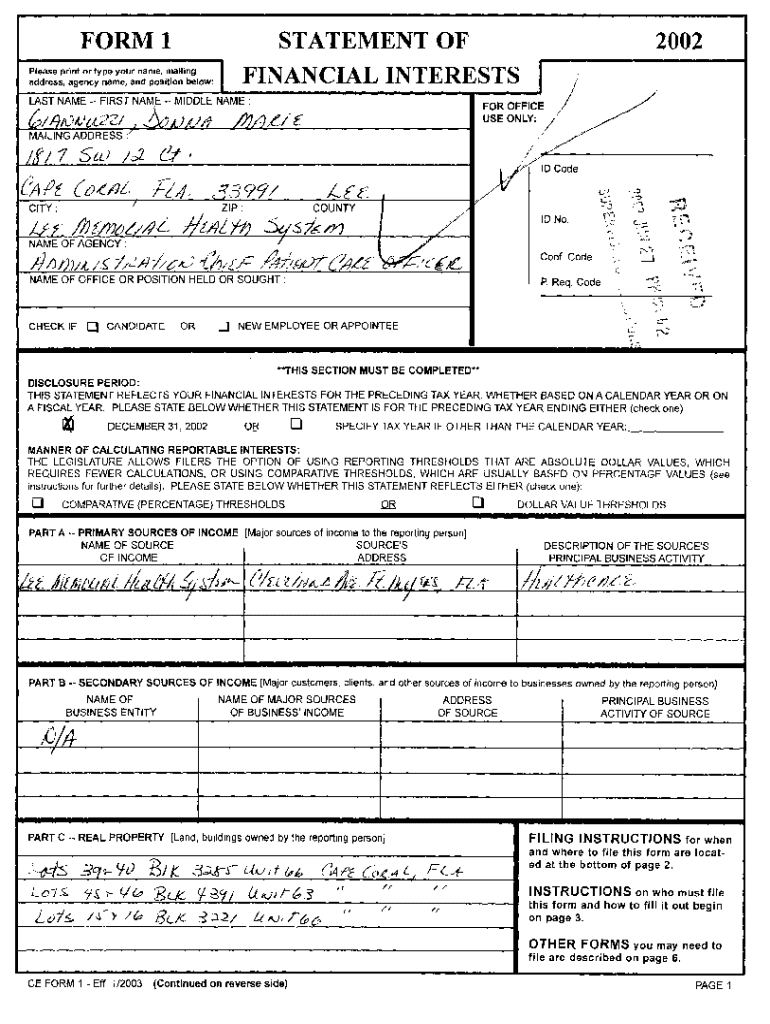 FORM 1
STATEMENT OF
FINANCIAL INTERESTS
2002
Please print or type your name, mailing
address, agency name, and position below:
LAST NAME -- FIRST NAME -- MIDDLE NAME :
GIANNUZZI, DONNA MARIE
MAILING ADDRESS :
1817 SW 12 Ct.
CAPE CORAL, FLA. 33991 LEE
CITY : ZIP : COUNTY
LEE MEMORIAL HEALTH SYSTEM
NAME OF AGENCY :
ADMINISTRATION CHIEF PATIENT CARE OFFICER
NAME OF OFFICE OR POSITION HELD OR SOUGHT :
CHECK IF CANDIDATE OR NEW EMPLOYEE OR APPOINTEE
FOR OFFICE
USE ONLY:
ID Code
ID No.
Conf. Code
P. Req. Code
RECEIVED
**THIS SECTION MUST BE COMPLETED**
DISCLOSURE PERIOD:
THIS STATEMENT REFLECTS YOUR FINANCIAL INTERESTS FOR THE PRECEDING TAX YEAR, WHETHER BASED ON A CALENDAR YEAR OR ON
A FISCAL YEAR. PLEASE STATE BELOW WHETHER THIS STATEMENT IS FOR THE PRECEDING TAX YEAR ENDING EITHER (check one)
X DECEMBER 31, 2002 OR SPECIFY TAX YEAR IF OTHER THAN THE CALENDAR YEAR:
MANNER OF CALCULATING REPORTABLE INTERESTS:
THE LEGISLATURE ALLOWS FILERS THE OPTION OF USING REPORTING THRESHOLDS THAT ARE ABSOLUTE DOLLAR VALUES, WHICH
REQUIRES FEWER CALCULATIONS, OR USING COMPARATIVE THRESHOLDS, WHICH ARE USUALLY BASED ON PERCENTAGE VALUES (see
instructions for further details). PLEASE STATE BELOW WHETHER THIS STATEMENT REFLECTS EITHER (check one):
COMPARATIVE (PERCENTAGE) THRESHOLDS OR DOLLAR VALUE THRESHOLDS
PART A -- PRIMARY SOURCES OF INCOME [Major sources of income to the reporting person]
NAME OF SOURCE
OF INCOME
SOURCE'S
ADDRESS
DESCRIPTION OF THE SOURCE'S
PRINCIPAL BUSINESS ACTIVITY
LEE MEMORIAL Health System Cleveland Ave Ft. Myers, FLA Healthcare
PART B -- SECONDARY SOURCES OF INCOME [Major customers, clients, and other sources of income to businesses owned by the reporting person]
NAME OF
BUSINESS ENTITY
NAME OF MAJOR SOURCES
OF BUSINESS' INCOME
ADDRESS
OF SOURCE
PRINCIPAL BUSINESS
ACTIVITY OF SOURCE
N/A
PART C -- REAL PROPERTY [Land, buildings owned by the reporting person]
Lots 39+40 Blk 3285 Unit 66 CAPE CORAL, FLA
LOTS 45+46 BLK 4391 Unit 63 " " "
LOTS 15+16 BLK 3221 UNIT 66 " " "
FILING INSTRUCTIONS for when
and where to file this form are locat-
ed at the bottom of page 2.
INSTRUCTIONS on who must file
this form and how to fill it out begin
on page 3.
OTHER FORMS you may need to
file are described on page 6.
CE FORM 1 - Eff 1/2003 (Continued on reverse side)
PAGE 1